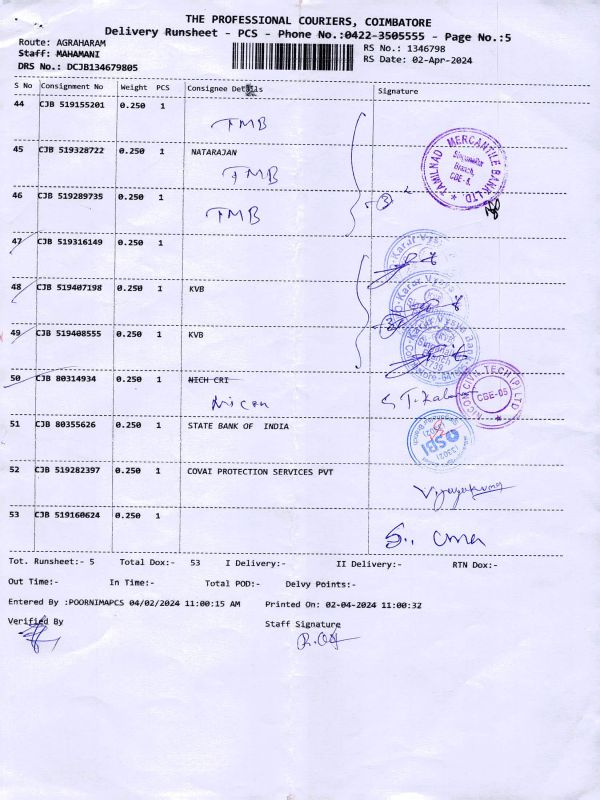 THE PROFESSIONAL COURIERS, COIMBATORE
Delivery Runsheet - PCS - Phone No.:0422-3505555 - Page No.:5
Route: AGRAHARAM
RS No.: 1346798
Staff: MAHAMANI
RS Date: 02-Apr-2024
DRS No.: DCJB134679805
S No Consignment No Weight PCS Consignee Details Signature
44 CJB 519155201 0.250 1
TMB
45 CJB 519328722 0.250 1 NATARAJAN
TMB
TAMILNAD MERCANTILE BANK LTD.
Branch,
CBE-
46 CJB 519289735 0.250 1
TMB
3
47 CJB 519316149 0.250 1
Karur Vysya
48 CJB 519407198 0.250 1 KVB
Karur Vysya
3
49 CJB 519408555 0.250 1 KVB
Karur Vysya Bank
50 CJB 80314934 0.250 1 NICH CRI
Nicon
NICON CIVIL TECH (P) LTD
CBE-05
51 CJB 80355626 0.250 1 STATE BANK OF INDIA
SBI
52 CJB 519282397 0.250 1 COVAI PROTECTION SERVICES PVT
Vijayakumar
53 CJB 519160624 0.250 1
S.. Uma
Tot. Runsheet:- 5 Total Dox:- 53 I Delivery:- II Delivery:- RTN Dox:-
Out Time:- In Time:- Total POD:- Delvy Points:-
Entered By :POORNIMAPCS 04/02/2024 11:00:15 AM Printed On: 02-04-2024 11:00:32
Verified By
Staff Signature